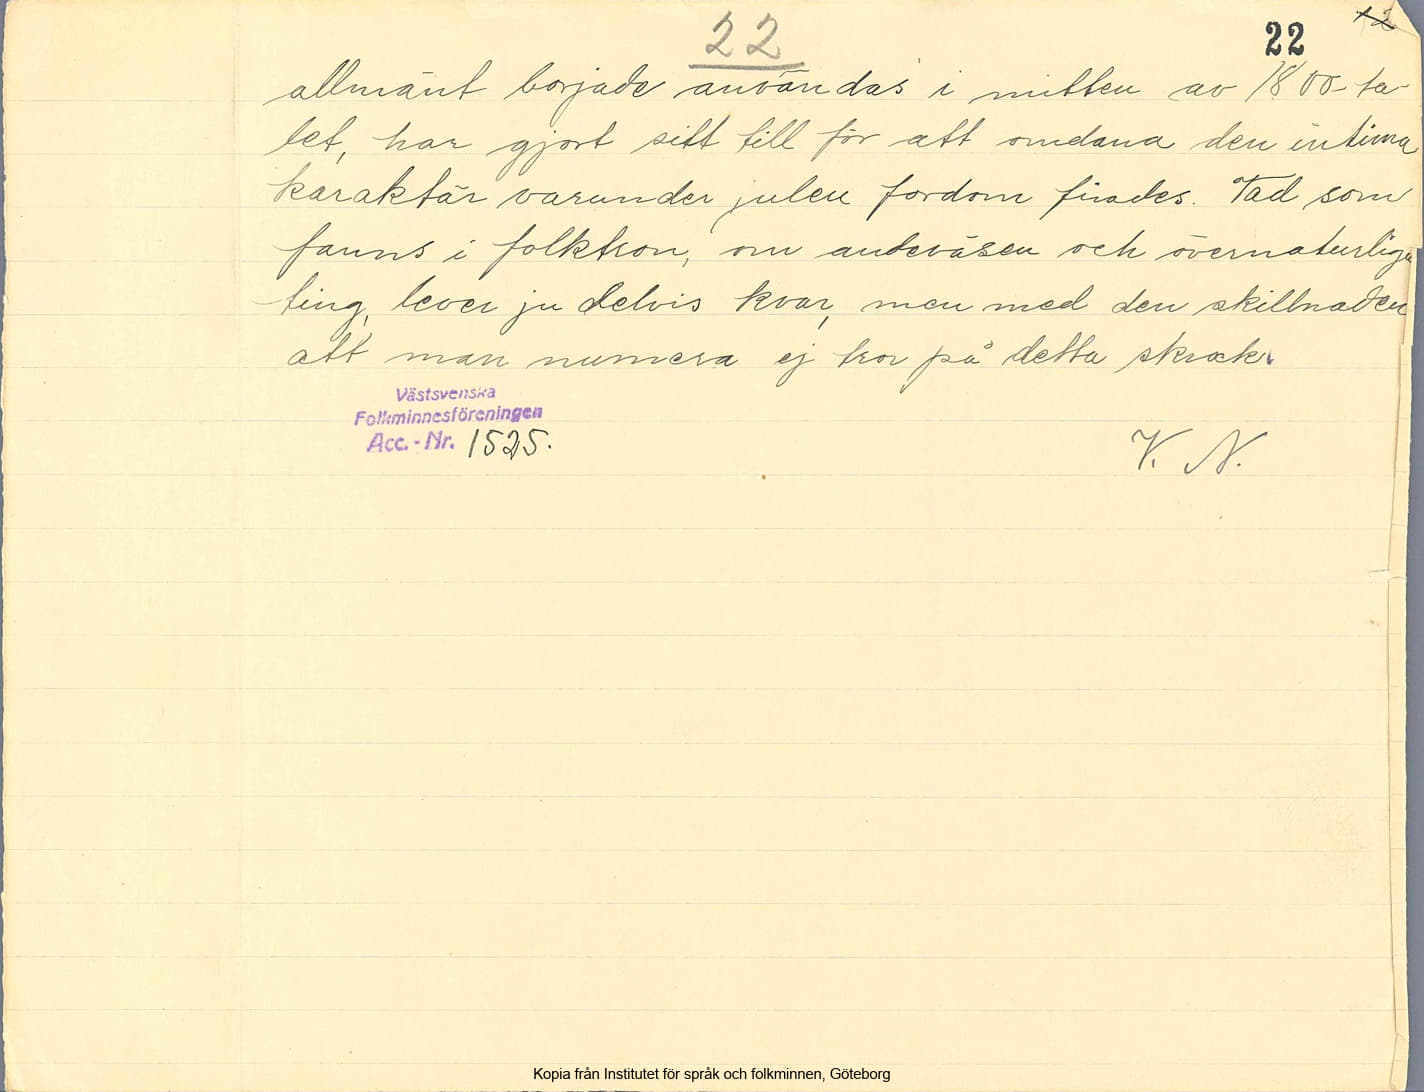 22
22
allmänt började användas i mitten av 1800-ta-
let, har gjort sitt till för att omdana den intima
karaktär varunder julen fordom firades. Vad som
fanns i folktron, om andeväsen och övernaturliga
ting, lever ju delvis kvar, men med den skillnaden
att man numera ej tror på detta skrock.
Västsvenska
Folkminnesföreningen
Acc.-Nr. 1525.
V. N.
Kopia från Institutet för språk och folkminnen, Göteborg